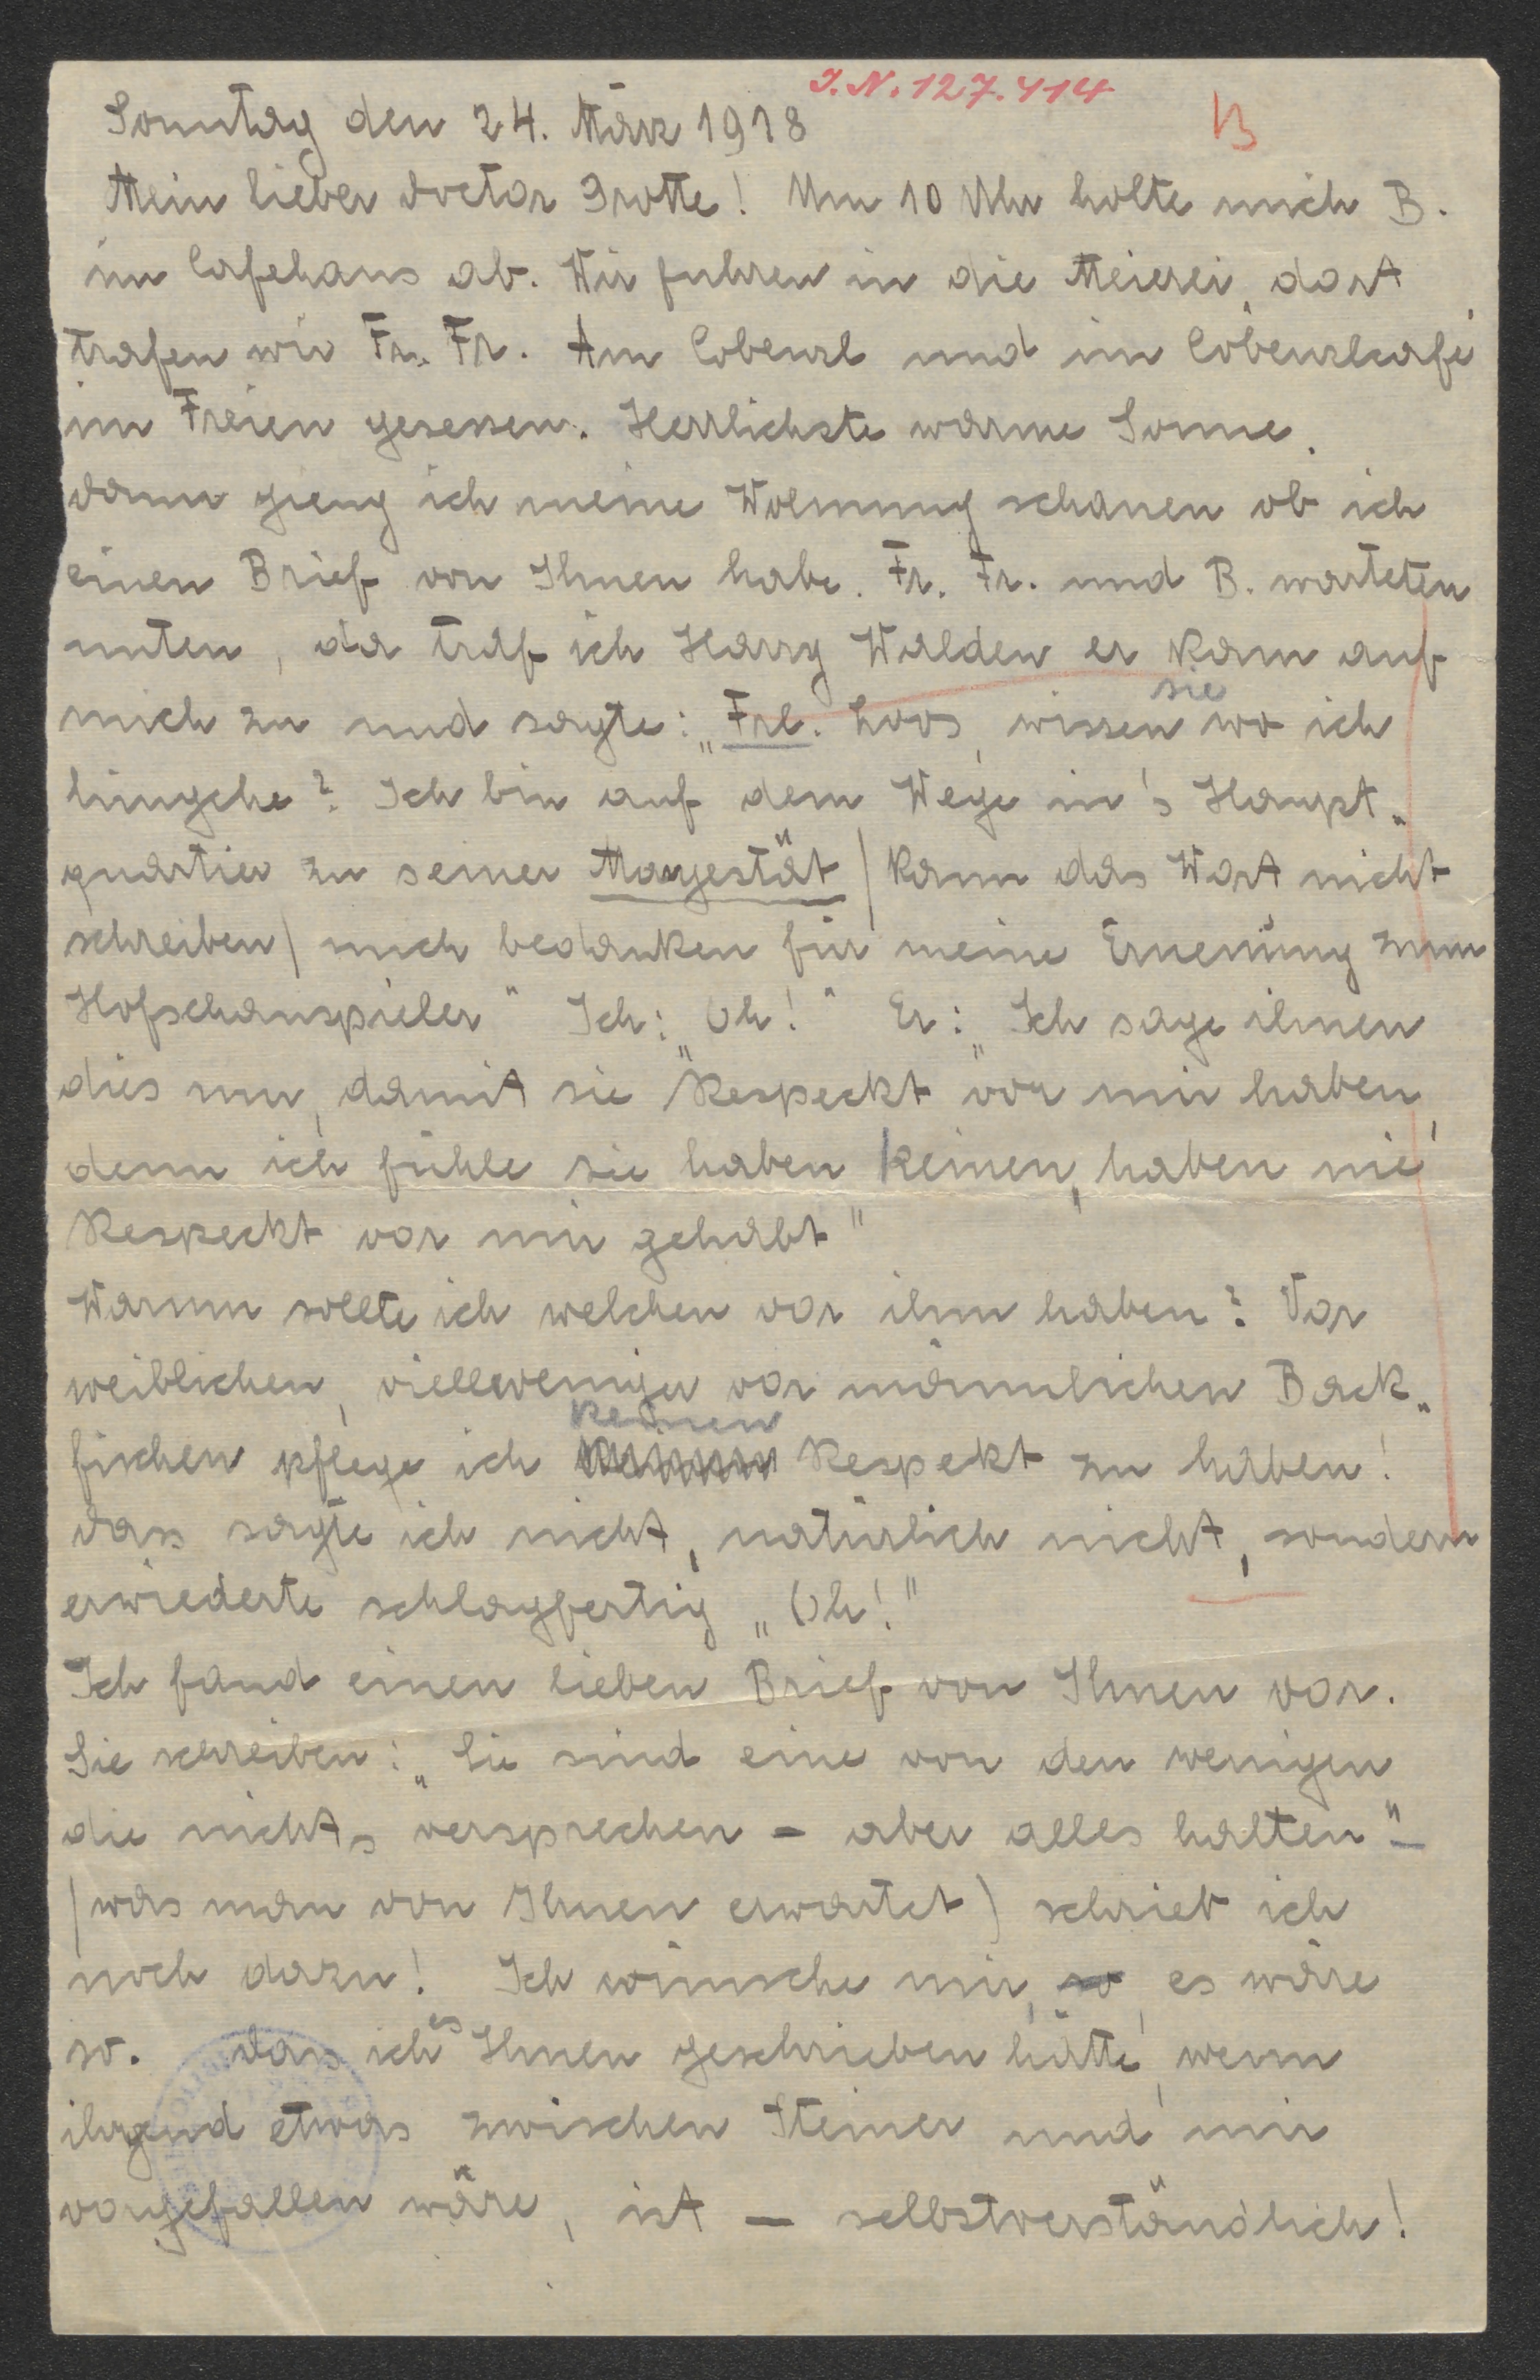 I.N. 127.414
B
Sonntag den 24. März 1918
Mein lieber Doctor Grotte! Um 10 Uhr holte mich B.
im Cafehaus ab. Wir fuhren in die Meierei, dort
trafen wir Fr. Fr. Am Cobenzl und im Cobenzlcafé
im Freien gesessen. Herrlichste warme Sonne.
Dann gieng ich meine Wohnung schauen ob ich
einen Brief von Ihnen habe. Fr. Fr. und B. warteten
unten, da traf ich Harry Walden er kam auf
mich zu und sagte: „Frl. Loos, wissen sie wo ich
hingehe? Ich bin auf dem Wege in's Haupt„
quartier zu seiner Mayestät (kann das Wort nicht
schreiben) mich bedanken für meine Ernenung zum
Hofschauspieler" Ich: „Oh!" Er: „Ich sage ihnen
dies nur, damit sie Respeckt vor mir haben,
denn ich fühle sie haben keinen, haben nie
Respeckt vor mir gehabt"
Warum sollte ich welchen vor ihm haben? Vor
weiblichen, viellweniger vor männlichen Back„
fischen pflege ich keinen Respekt zu haben!
Dass sagte ich nicht, natürlich nicht, sondern
erwiederte schlagfertig „Oh!"
Ich fand einen lieben Brief von Ihnen vor.
Sie schreiben: „Sie sind eine von den wenigen
die nichts versprechen – aber alles halten" –
(was man von Ihnen erwartet) schrieb ich
noch dazu! Ich wünsche mir, so, es wäre
so. Dass ich es Ihnen geschrieben hätte, wenn
ihrgend etwas zwischen Steiner und mir
vorgefallen wäre, ist — selbstverständlich!